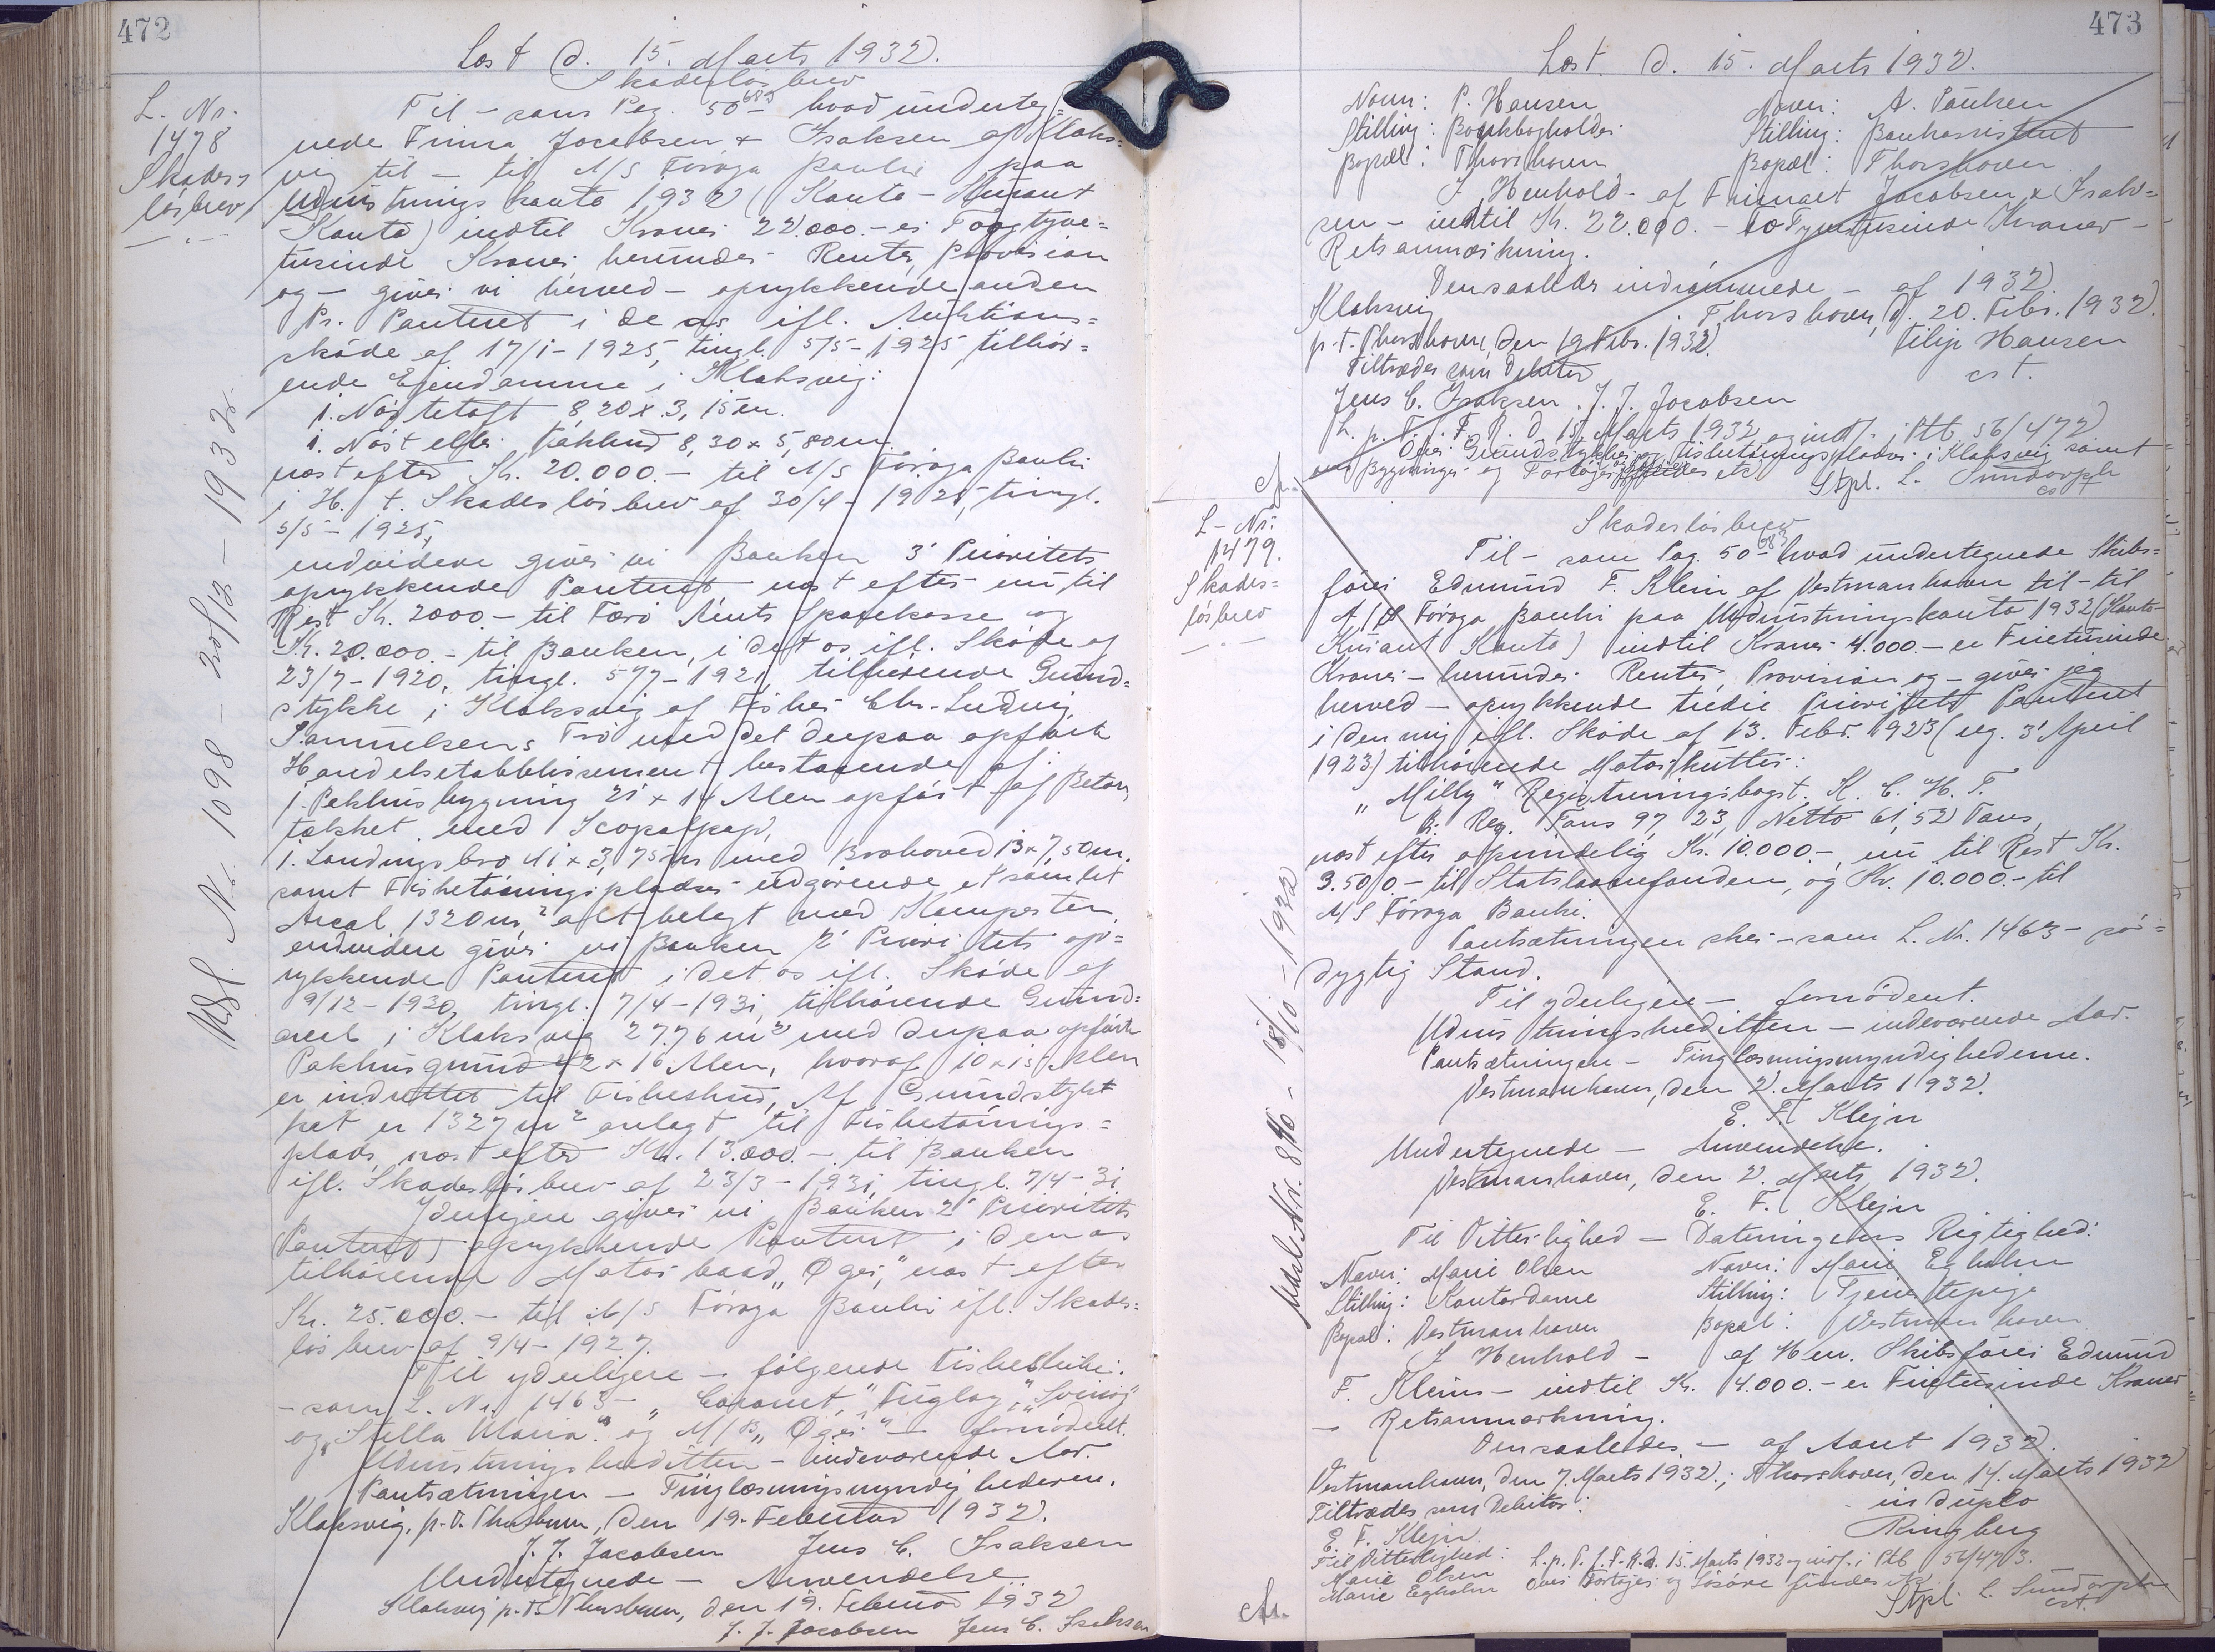 472
Læst d. 15. Marts 1932.
Skadesløsbrev
L. Nr.
1478
Skades-
løsbrev
Til – som Pag. 50 683 – hvad underteg=
nede Firma Jacobsen & Isaksen af Klaks=
vig til – til A/S Føroya Banki paa
Udrustningskonto 1932 (Konto-Kurant
Konto) indtil Kroner 22.000.– er Toogtyve=
tusinde Kroner herunder Renter, Provision
og – giver vi herved – oprykkende anden
Pr. Panteret i de os ifl. Auktions=
skøde af 17/1–1925, tingl. 5/5–1925 tilhør=
ende Ejendomme i Klaksvig:
1. Nøstetoft 8,20 x 3,15 m.
1. Nøst eller 8,30 x 5,80 m.
næst efter Kr. 20.000.– til A/S Føroya Banki
i H. t. Skadesløsbrev af 30/4–1925, tingl.
5/5–1925,
endvidere giver vi Banken 3' Prioritets
oprykkende Panteret, næst efter nu til
Rest Kr. 2000.– til Færø Amts Sparekasse og
Kr. 20.000.– til Banken, i det os ifl. Skøde af
23/7–1920, tingl. 5/7–1921 tilhørende Grund=
stykke i Klaksvig af Fisker Chr. Ludvig
Samuelsens Trø med det derpaa opførte
Handelsetablissement bestaaende af:
1. Pakhusbygning 21 x 14 Alen opført af Beton,
tækket med
1. Landingsbro 41 x 3,75 m med Brohoved 13 x 7,50 m.
samt Fisketørringspladser udgørende et samlet
Areal 1320 m² alt belagt med Kampesten,
endvidere giver vi Banken 2' Prioritets op=
rykkende Panteret i det os ifl. Skøde af
9/12–1930, tingl. 7/4–1931, tilhørende Grund=
areal i Klaksvig 2776 m² med derpaa opført
Pakhusgrund 42 x 16 Alen, hvoraf 10 x 15 Alen
er indrettet til Fiskeshus, Af Grundstyk
ket er 1327 m² anlagt til Fisketørrings=
plads, næst efter Kr. 13.000.– til Banken
ifl. Skadesløsbrev af 23/3–1931, tingl. 7/4–31
Yderligere giver vi Banken 2' Prioritets
(Panteret) oprykkende Panteret i den os
tilhørende Motorbaad „Øger," næst efter
Kr. 25.000.– til A/S Føroya Banki ifl. Skades=
løsbrev af 9/4–1927.
Til yderligere – følgende Fiskekutter:
– som L. Nr. 1463 – „Coronet," „Fugloy," „Svinoy"
og „Stella Maria." og M/B „Øger" – fornødent.
Udrustningskreditten – indeværende Aar.
Pantsætningen – Tinglæsningsmyndighederne.
Klaksvig, p.t. Thorshavn, den 19. Februar 1932.
J. J. Jacobsen Jens C. Isaksen
Undertegnede – Anvendelse.
Klaksvig p.t. Thorshavn, den 19. Februar 1932
J. J. Jacobsen Jens C. Isaksen
Udsl. Nr. 1098 – 30/12 – 1932.
473
Læst. d. 15. Marts 1932.
Navn: P. Hansen Navn: A. Paulsen
Stilling: Bankbogholder Stilling: Bankassistent
Bopæl: Thorshavn Bopæl: Thorshavn
I Henhold – af Firmaet Jacobsen & Isak=
sen – indtil Kr. 22.000.– ToTyvetusinde Kroner –
Retsanmærkning.
Den saaledes indrømmede – af 1932
Klaksvig Thorshavn, d. 20. Febr. 1932.
p.t. Thorshavn, den 19 Febr. 1932. Filip Hansen
Tiltrædes som Debitor cst.
Jens C. Isaksen J. J. Jacobsen
L. p. T. f. F. R. d. 15. Marts 1932 og indf. i Ptb 56/472
Over Grundstykker og Fisketørringspladser i Klaksvig samt
Bygninger og Fartøjer findes etc.
Stpl. L. Sundorph
cst
L. Nr.
1479.
Skades=
løsbrev
Skadesløsbrev
Til – som Pag. 50 683 – hvad undertegnede Skibs=
fører Edmund F. Klein af Vestmanhavn til – til
A/S Føroya Banki paa Udrustningskonto 1932 (Konto-
Kurant Konto) indtil Kroner 4.000.– er Firetusinde
Kroner – herunder Renter, Provision og – giver jeg
herved – oprykkende tredie Prioritets Panteret
i den mig ifl. Skøde af 13. Febr. 1923 (reg. 3' April
1923) tilhørende Motorkutter:
„Milly" Registreringsbogst. K. C. H. T.
Br. Reg. Tons 97,23, Netto 61,52 Tons,
næst efter oprindelig Kr. 10.000.–, nu til Rest Kr.
3.500.– til Statslaanefonden, og Kr. 10.000.– til
A/S Føroya Banki.
Pantsætningen sker – som L. Nr. 1463 – sø=
dygtig Stand.
Til yderligere – fornødent.
Udrustningskreditten – indeværende Aar.
Pantsætningen – Tinglæsningsmyndighederne.
Vestmanhavn, den 2. Marts 1932.
E. F. Klejn
Undertegnede – Anvendelse.
Vestmanhavn, den 2. Marts 1932.
E. F. Klejn
Til Vitterlighed – Dateringens Rigtighed:
Navn: Marie Olsen Navn: Marie Egholm
Stilling: Kontordame Stilling: Tjenestepige
Bopæl: Vestmanhavn Bopæl: Vestmanhavn
I Henhold – af Hrr. Skibsfører Edmund
F. Kleins – indtil Kr. 4.000.– er Firetusinde Kroner
– Retsanmærkning.
Den saaledes – af Aaret 1932.
Vestmanhavn, den 7. Marts 1932.; Thorshavn, den 14. Marts 1932
Tiltrædes som Debitor: in duplo
E. F. Klejn Ringberg
Til Vitterlighed: L. p. T. f. F. R. d. 15. Marts 1932 og indf. i Ptb 56/473.
Marie Olsen Over Fartøjer og Løsøre findes etc.
Marie Egholm Stpl. L. Sundorph
cst.
Udsl. Nr. 840 – 18/10 – 1932